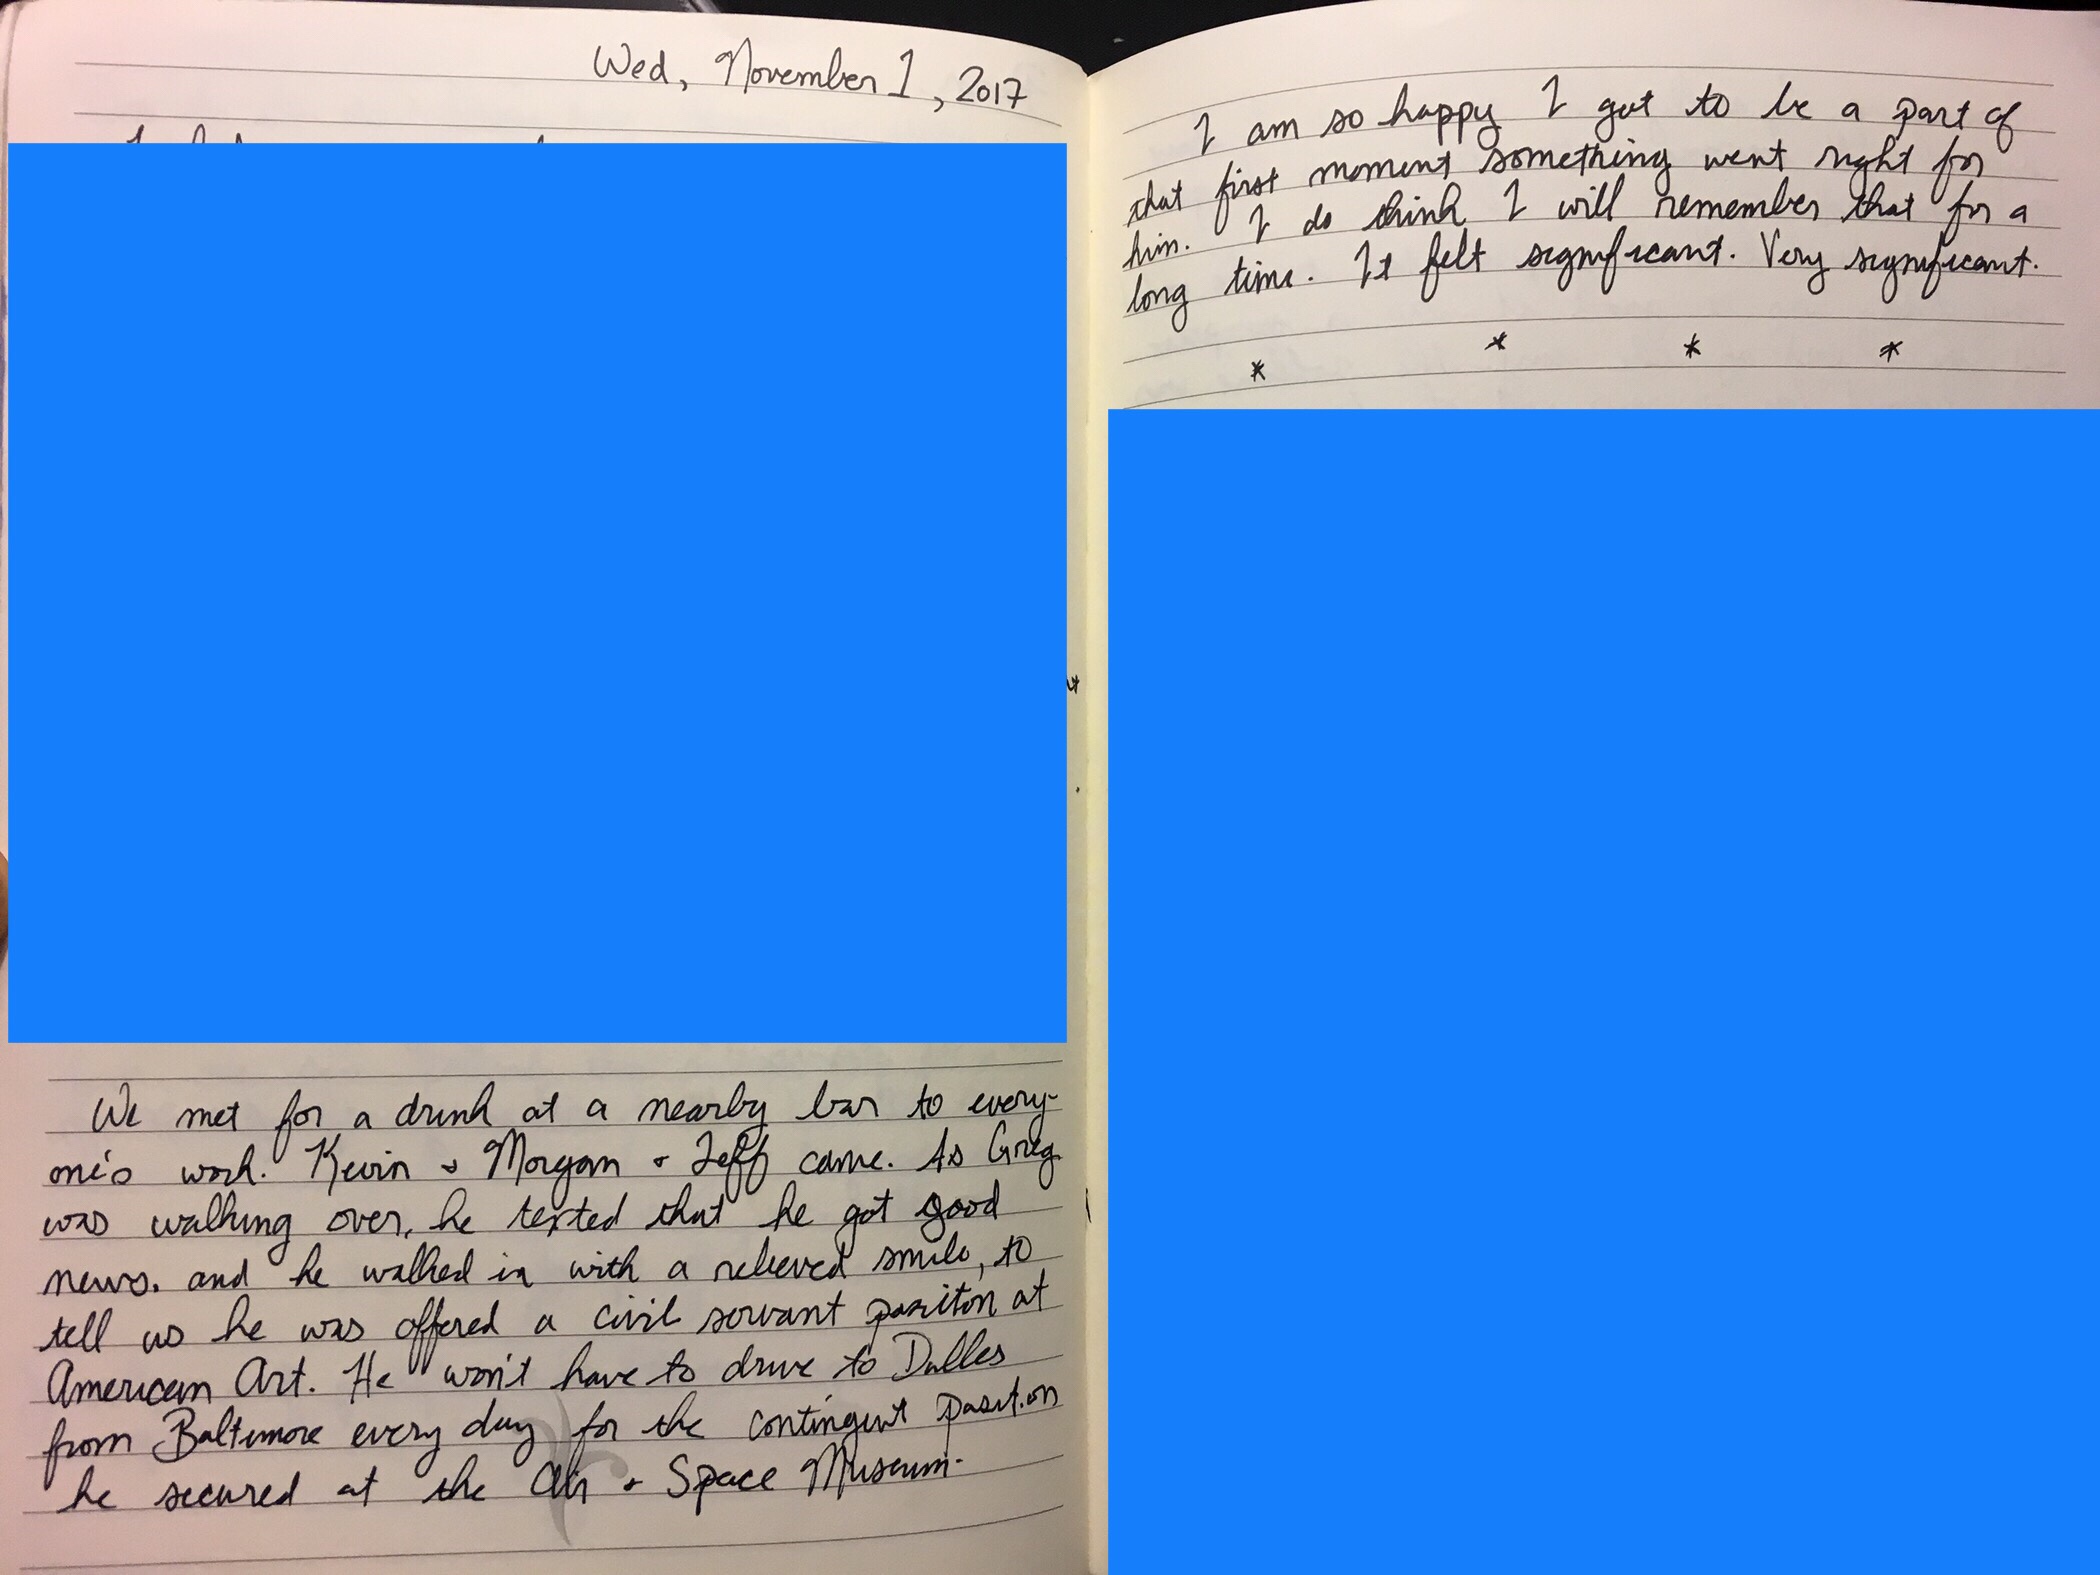 Wed, November 1, 2017
We met for a drink at a nearby bar to every-
one's work. Kevin + Morgan + Jeff came. As Greg
was walking over, he texted that he got good
news. and he walked in with a relieved smile, to
tell us he was offered a civil servant positon at
American Art. He won't have to drive to Dulles
from Baltimore every day for the contingent position
he secured at the Air + Space Museum.
I am so happy I got to be a part of
that first moment something went right for
him. I do think I will remember that for a
long time. It felt significant. Very significant.
* * * *